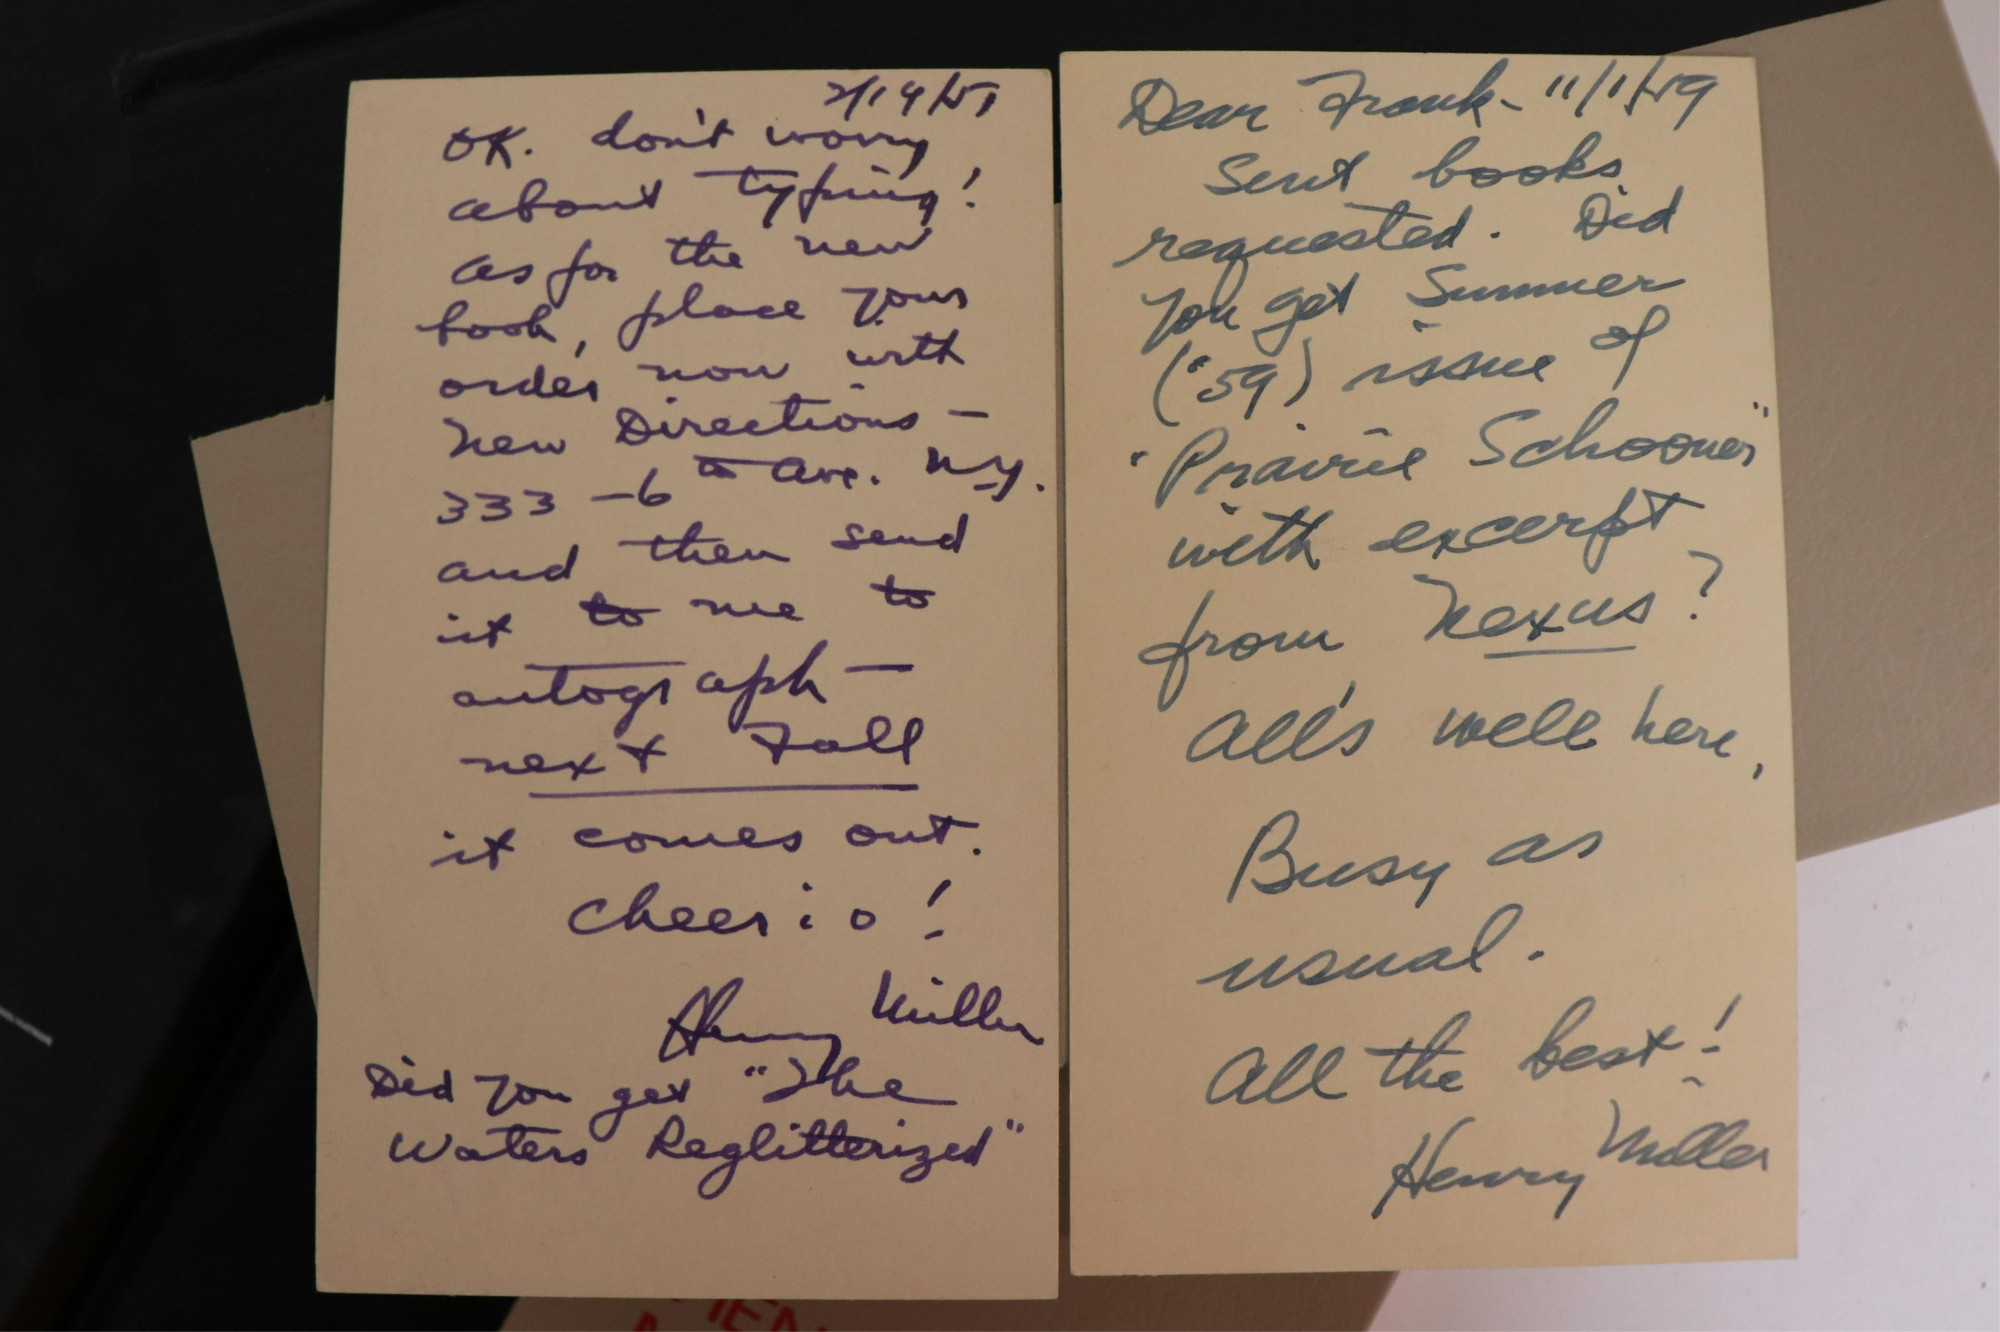 OK. don't worry
about typing!
as for the new
book, place your
order now with
New Directions —
333 — 6th Ave. N.Y.
and then send
it to me to
autograph —
next Fall
it comes out.
Cheerio!
Henry Miller
Did you get "The
Waters Reglitterized"
Dear Frank - 11/1/59
Sent books
requested. Did
you get Summer
('59) issue of
"Prairie Schooner"
with excerpt
from Nexus?
All's well here,
Busy as
usual.
All the best!
Henry Miller